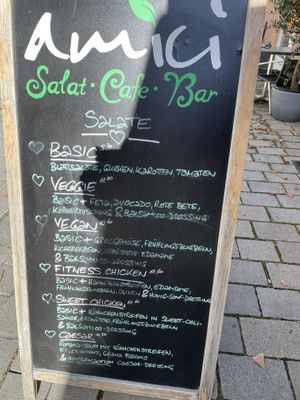 amici
Salat · Cafe · Bar
SALATE
BASIC
BLATTSALATE, GURKEN, KAROTTEN, TOMATEN
VEGGIE
BASIC + FETA, AVOCADO, ROTE BETE,
KÖRNERMISCHUNG & BALSAMICO-DRESSING
VEGAN
BASIC + GRILLGEMÜSE, FRÜHLINGSZWIEBELN,
KICHERERBSEN, EDAMAME
& BALSAMICO-DRESSING
FITNESS CHICKEN
BASIC + HÄHNCHENSTREIFEN, EDAMAME,
FRÜHLINGSZWIEBELN, & HONIG-SENF-DRESSING
SWEET CHICKEN
BASIC + HÄHNCHENSTREIFEN IN SWEET-CHILI-
SAUCE, ERDNÜSSE, FRÜHLINGSZWIEBELN
& BALSAMICO-DRESSING
CAESAR
ROMANA-SALAT MIT HÄHNCHENSTREIFEN,
CROUTONS, GRANA PADANO
& CAESAR-DRESSING